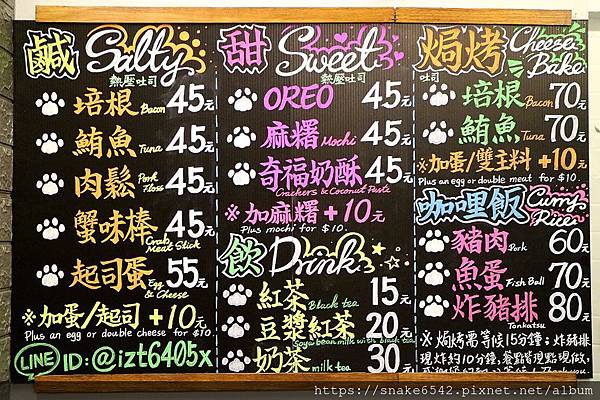 鹹 Salty
熱壓吐司
培根 Bacon 45元
鮪魚 Tuna 45元
肉鬆 Pork Floss 45元
蟹味棒 Crab Meat Stick 45元
起司蛋 Egg & Cheese 55元
※加蛋/起司 +10元
Plus an egg or double cheese for $10.
LINE ID:@izt6405x
甜 Sweet
熱壓吐司
OREO 45元
麻糬 Mochi 45元
奇福奶酥 45元
Crackers & Coconut Paste
※加麻糬 +10元
Plus mochi for $10.
飲 Drink
紅茶 Black tea 15元
豆漿紅茶 20元
Soya bean milk with black tea
奶茶 milk tea 30元
焗烤 Cheese Bake
吐司
培根 Bacon 70元
鮪魚 Tuna 70元
※加蛋/雙主料 +10元
Plus an egg or double meat for $10.
咖哩飯 Curry Rice
豬肉 Pork 60元
魚蛋 Fish Ball 70元
炸豬排 Tonkatsu 80元
※焗烤需等候15分鐘；炸豬排
現炸約10分鐘，餐點皆現點現做，
Thank you.
https://snake6542.pixnet.net/album